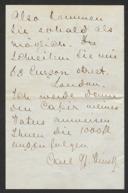 Also kommen
Sie sobald als
möglich. Zu
schreiben Sie mir
63 Curzon street.
London.
Ich werde dann
die Casse meines
Vaters anweisen
Ihnen die 1000 fl
auszufolgen
Carl